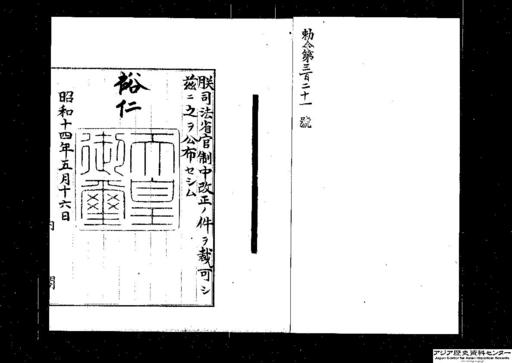 勅令第三百二十一號
朕司法省官制中改正ノ件ヲ裁可シ
茲ニ之ヲ公布セシム
裕仁
天皇
御璽
昭和十四年五月十六日
内閣
アジア歴史資料センター
Japan Center for Asian Historical Records